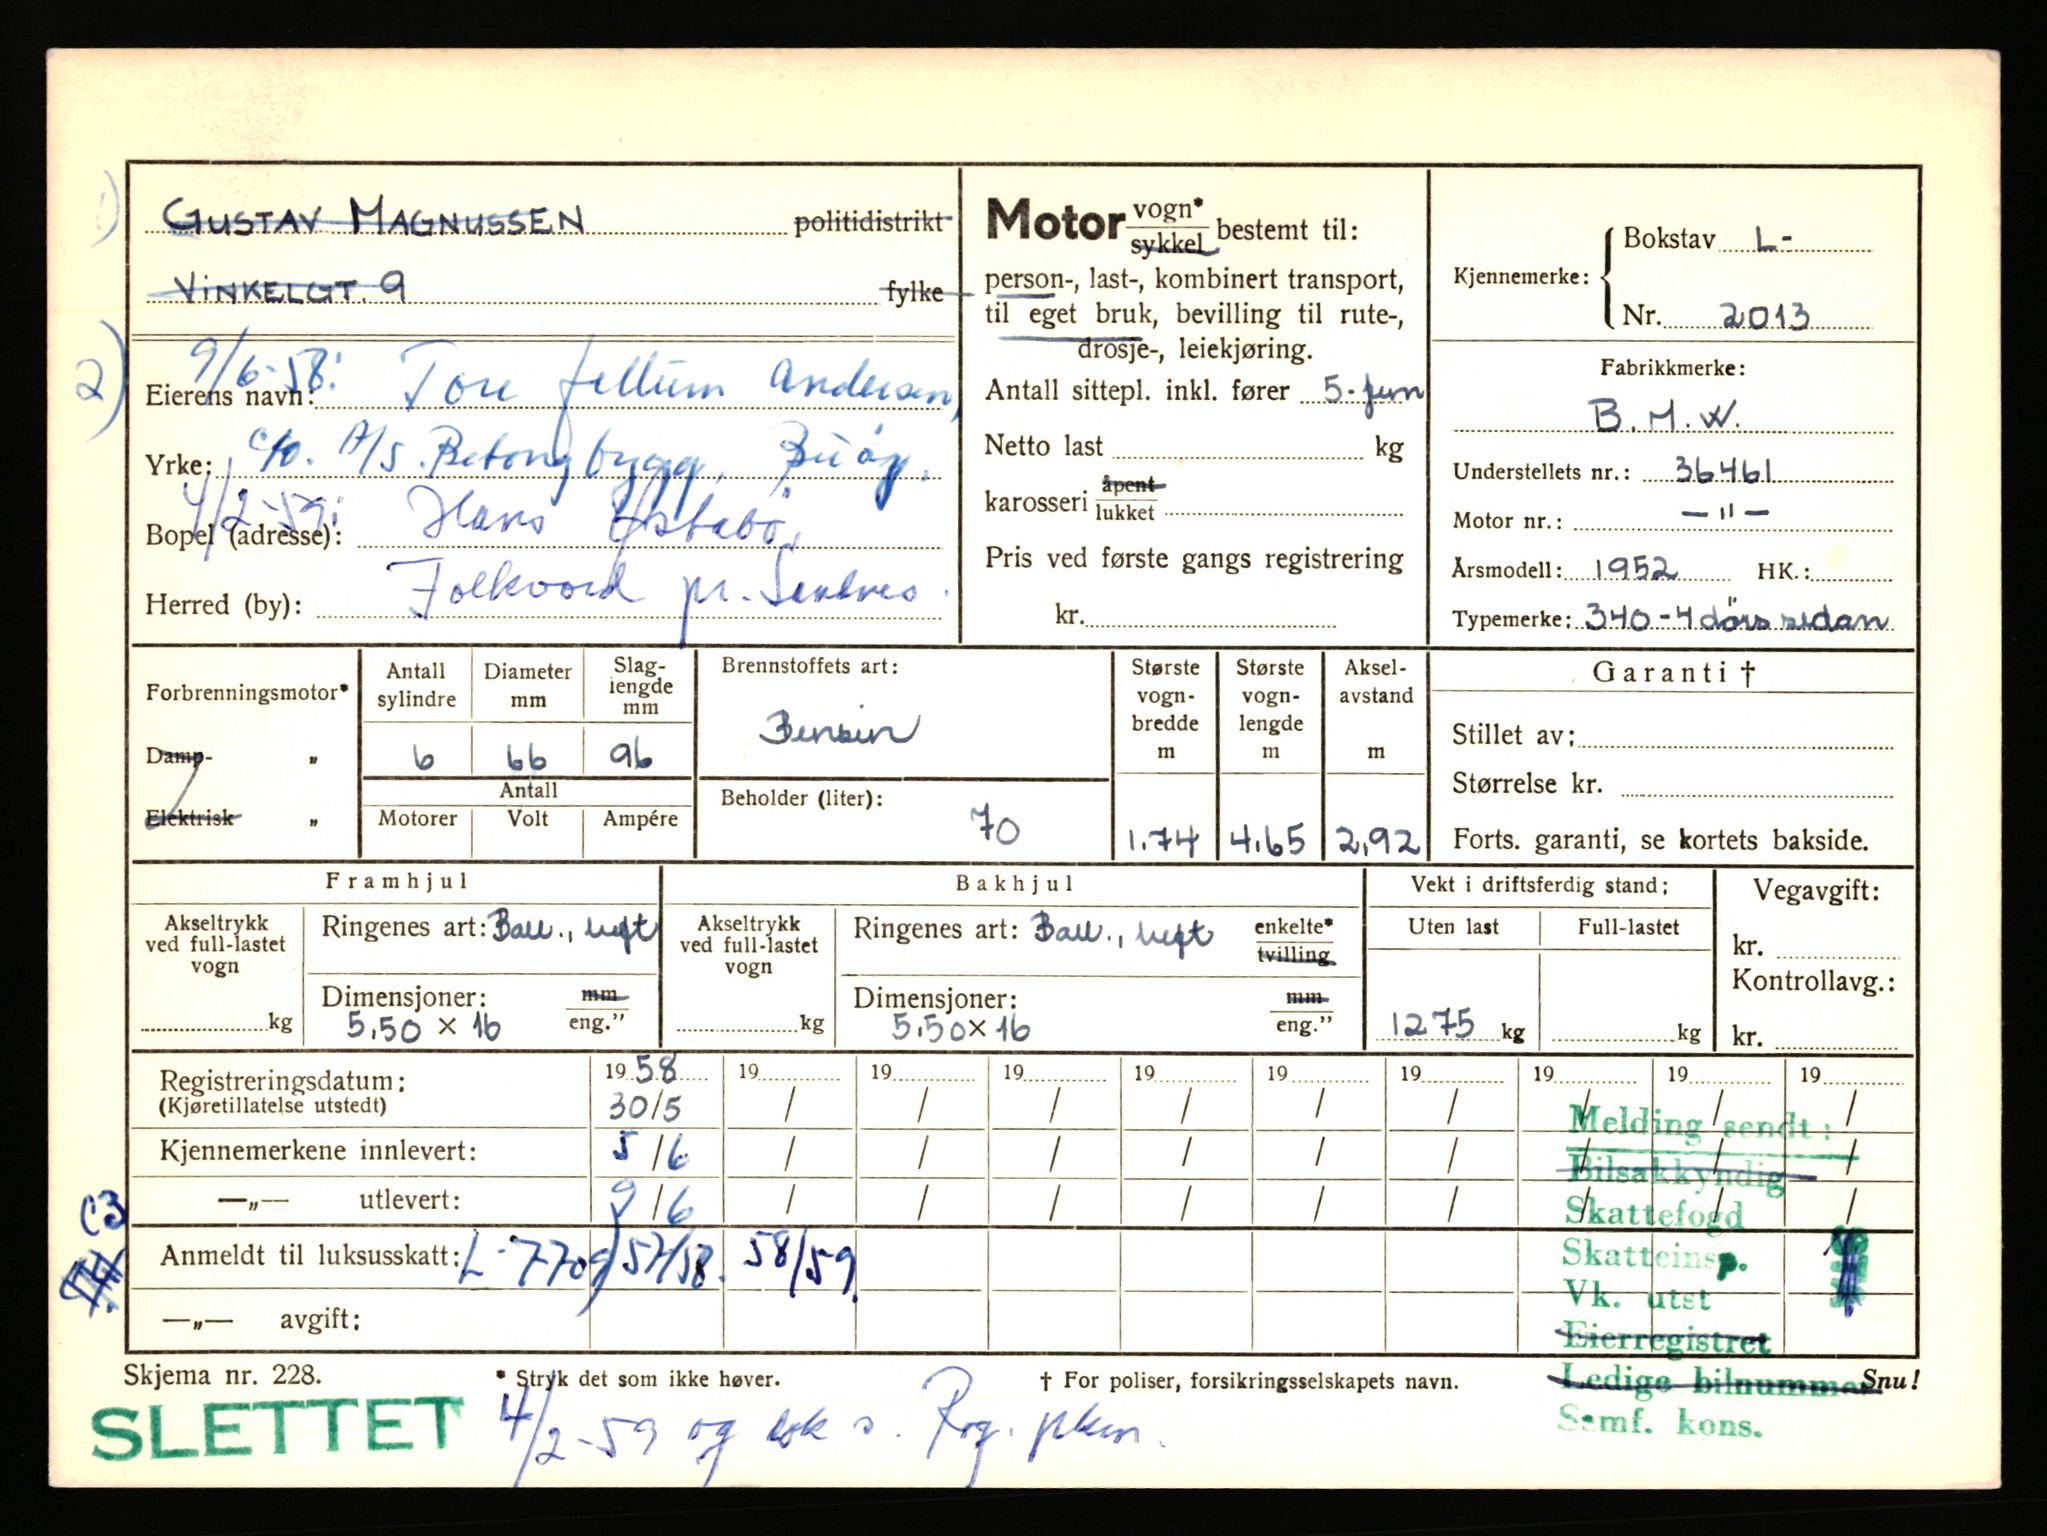 1) GUSTAV MAGNUSSEN politidistrikt
VINKELGT. 9 fylke
2) 9/6-58: Tore Andersen,
Eierens navn:
Yrke: c/o. A/S. Betongbygg,
4/2-59: Hans
Bopel (adresse):
Folkvord pr. Sandnes.
Herred (by):
Motor vogn* / sykkel bestemt til:
person-, last-, kombinert transport,
til eget bruk, bevilling til rute-,
drosje-, leiekjøring.
Antall sittepl. inkl. fører 5-fem
Netto last kg
karosseri åpent / lukket
Pris ved første gangs registrering
kr.
Kjennemerke: Bokstav L-
Nr. 2013
Fabrikkmerke:
B.M.W.
Understellets nr.: 36461
Motor nr.: —"—
Årsmodell: 1952 HK.:
Typemerke: 340-4 dörs sedan
Forbrenningsmotor*
Damp- „
Elektrisk „
Antall sylindre
6
Diameter mm
66
Slaglengde mm
96
Antall
Motorer Volt Ampére
Brennstoffets art:
Bensin
Beholder (liter):
70
Største vogn-bredde m
1.74
Største vogn-lengde m
4.65
Aksel-avstand m
2,92
Garanti †
Stillet av:
Størrelse kr.
Forts. garanti, se kortets bakside.
Framhjul
Akseltrykk ved full-lastet vogn
kg
Ringenes art: Ball., luft
Dimensjoner: mm / eng.”
5,50 × 16
Bakhjul
Akseltrykk ved full-lastet vogn
kg
Ringenes art: Ball., luft enkelte* / tvilling
Dimensjoner: mm / eng.”
5,50 × 16
Vekt i driftsferdig stand:
Uten last Full-lastet
1275 kg kg
Vegavgift:
kr.
Kontrollavg.:
kr.
Registreringsdatum: 1958 19 19 19 19 19 19 19 19 19
(Kjøretillatelse utstedt) 30/5 / / / / / / / / /
Kjennemerkene innlevert: 5/6 / / / / / / / / /
—„— utlevert: 9/6 / / / / / / / / /
Anmeldt til luksusskatt: L-7709 57/58. 58/59.
—„— avgift:
Melding sendt:
Bilsakkyndig
Skattefogd
Skatteinsp.
Vk. utst
Eierregistret
Ledige bilnummer
Samf. kons.
Skjema nr. 228. * Stryk det som ikke høver. † For poliser, forsikringsselskapets navn. Snu!
SLETTET 4/2-59 og